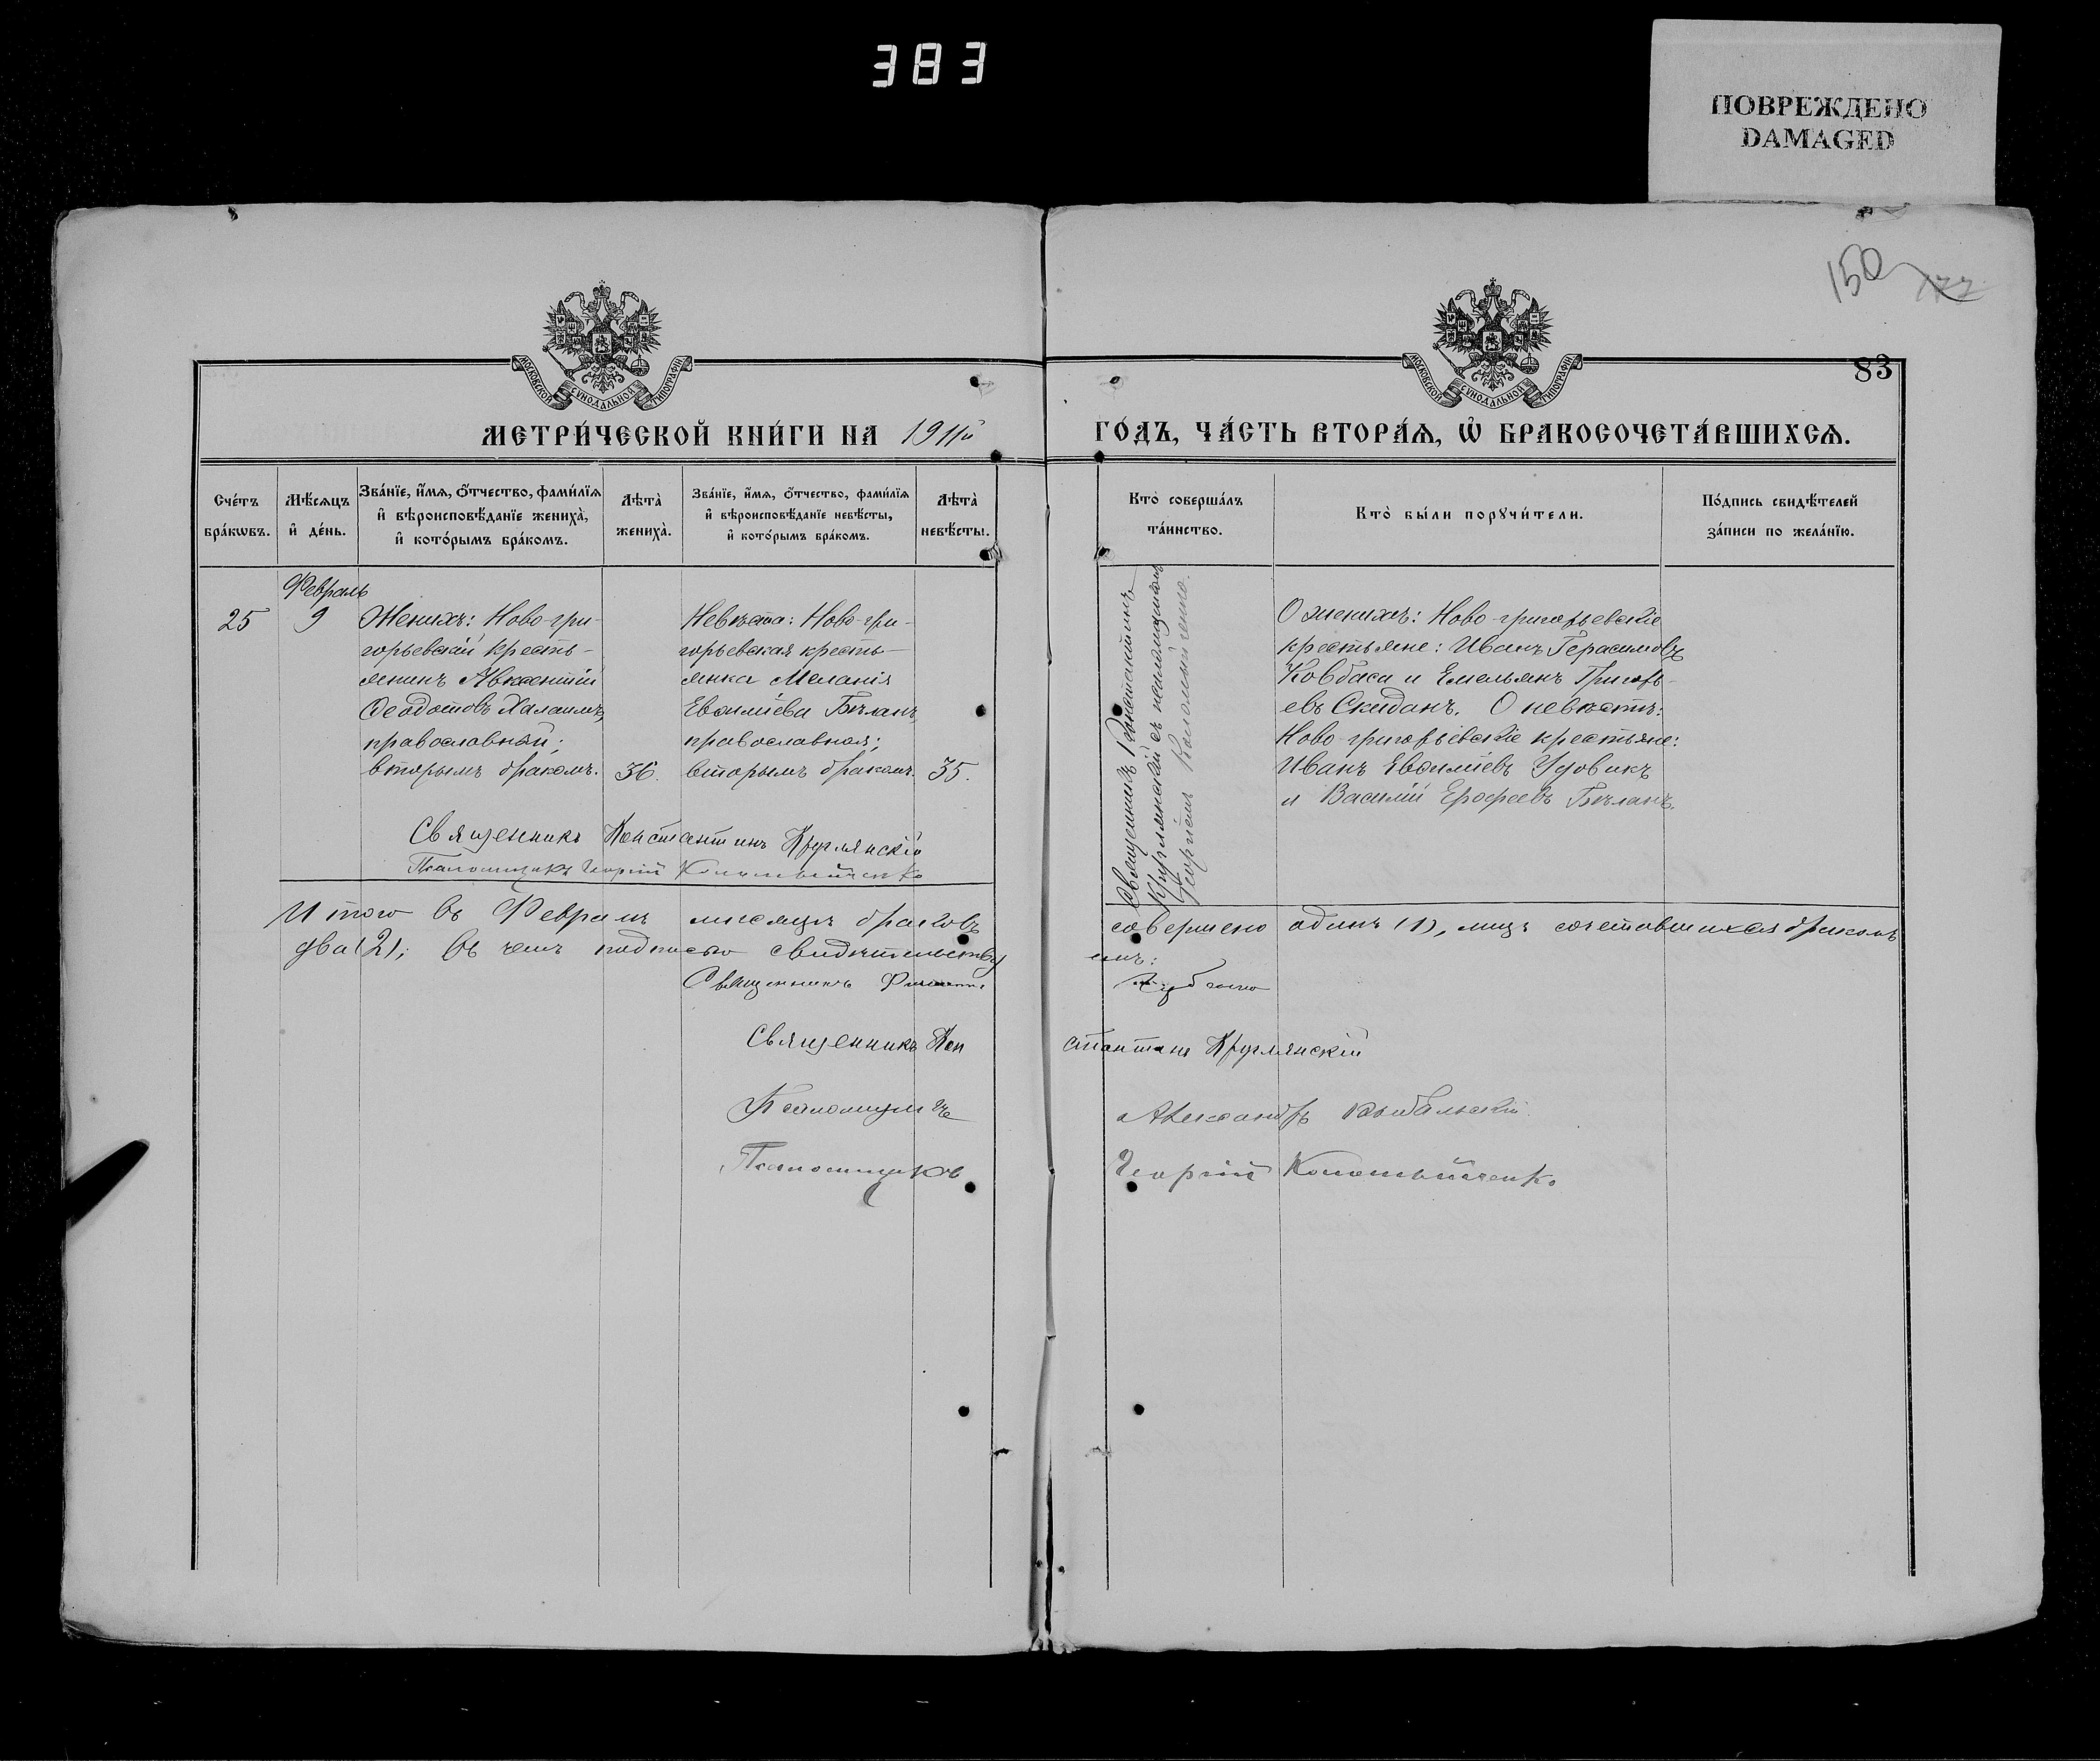 383
ПОВРЕЖДЕНО
DAMAGED
150
177
83
МОСКОВСКОЙ СѴНОДАЛЬНОЙ ТИПОГРАФІИ
МОСКОВСКОЙ СѴНОДАЛЬНОЙ ТИПОГРАФІИ
МЕТРИ́ЧЕСКОЙ КНИ́ГИ НА 1911й
ГО́ДЪ, ЧА́СТЬ ВТОРА́Ѧ, Ѽ БРАКОСОЧЕТА́ВШИХСѦ.
Сче́тъ
бра́кѡвъ.
Мѣ́сѧцъ
и҆ де́нь.
Зва́нїе, и҆́мѧ, ѻ҆́тчество, фами́лїѧ
и҆ вѣроисповѣ́данїе жениха̀,
и҆ кото́рымъ бра́комъ.
Лѣта̀
жениха̀.
Зва́нїе, и҆́мѧ, ѻ҆́тчество, фами́лїѧ
и҆ вѣроисповѣ́данїе невѣ́сты,
и҆ кото́рымъ бра́комъ.
Лѣта̀
невѣ́сты.
Кто̀ соверша́лъ
та́инство.
Кто̀ бы́ли порꙋчи́тели.
По́дпись свидѣ́телей
за́писи по жела́нїю.
Февраль
25
9
Женихъ: Ново-гри-
горьевскій кресть-
янинъ Авксентій
Ѳеодотовъ Халаимъ,
православный;
вторымъ бракомъ.
36.
Невѣста: Ново-гри-
горьевская кресть-
янка Меланія
Евѳиміева Бѣланъ,
православная;
вторымъ бракомъ.
35.
Священникъ Константинъ
Круглянскій съ псаломщикомъ
Георгіемъ Коломыйченко.
О женихѣ: Ново-григорьевскіе
крестьяне: Иванъ Герасимовъ
Ковбаса и Емельянъ Григорь-
евъ Скиданъ. О невѣстѣ:
Ново-григорьевскіе крестьяне:
Иванъ Евѳиміевъ Удовикъ
и Василій Ерофеевъ Бѣланъ.
Священникъ Константинъ Круглянскій
Псаломщикъ Георгій Коломыйченко
Итого въ Февралѣ мѣсяцѣ браковъ совершено одинъ (1), лицъ сочетавшихся бракомъ
два (2); въ чемъ подписью свидѣтельству
емъ:
Священникъ
Священникъ Константинъ Круглянскій
Псаломщикъ Александръ
Псаломщикъ Георгій Коломыйченко